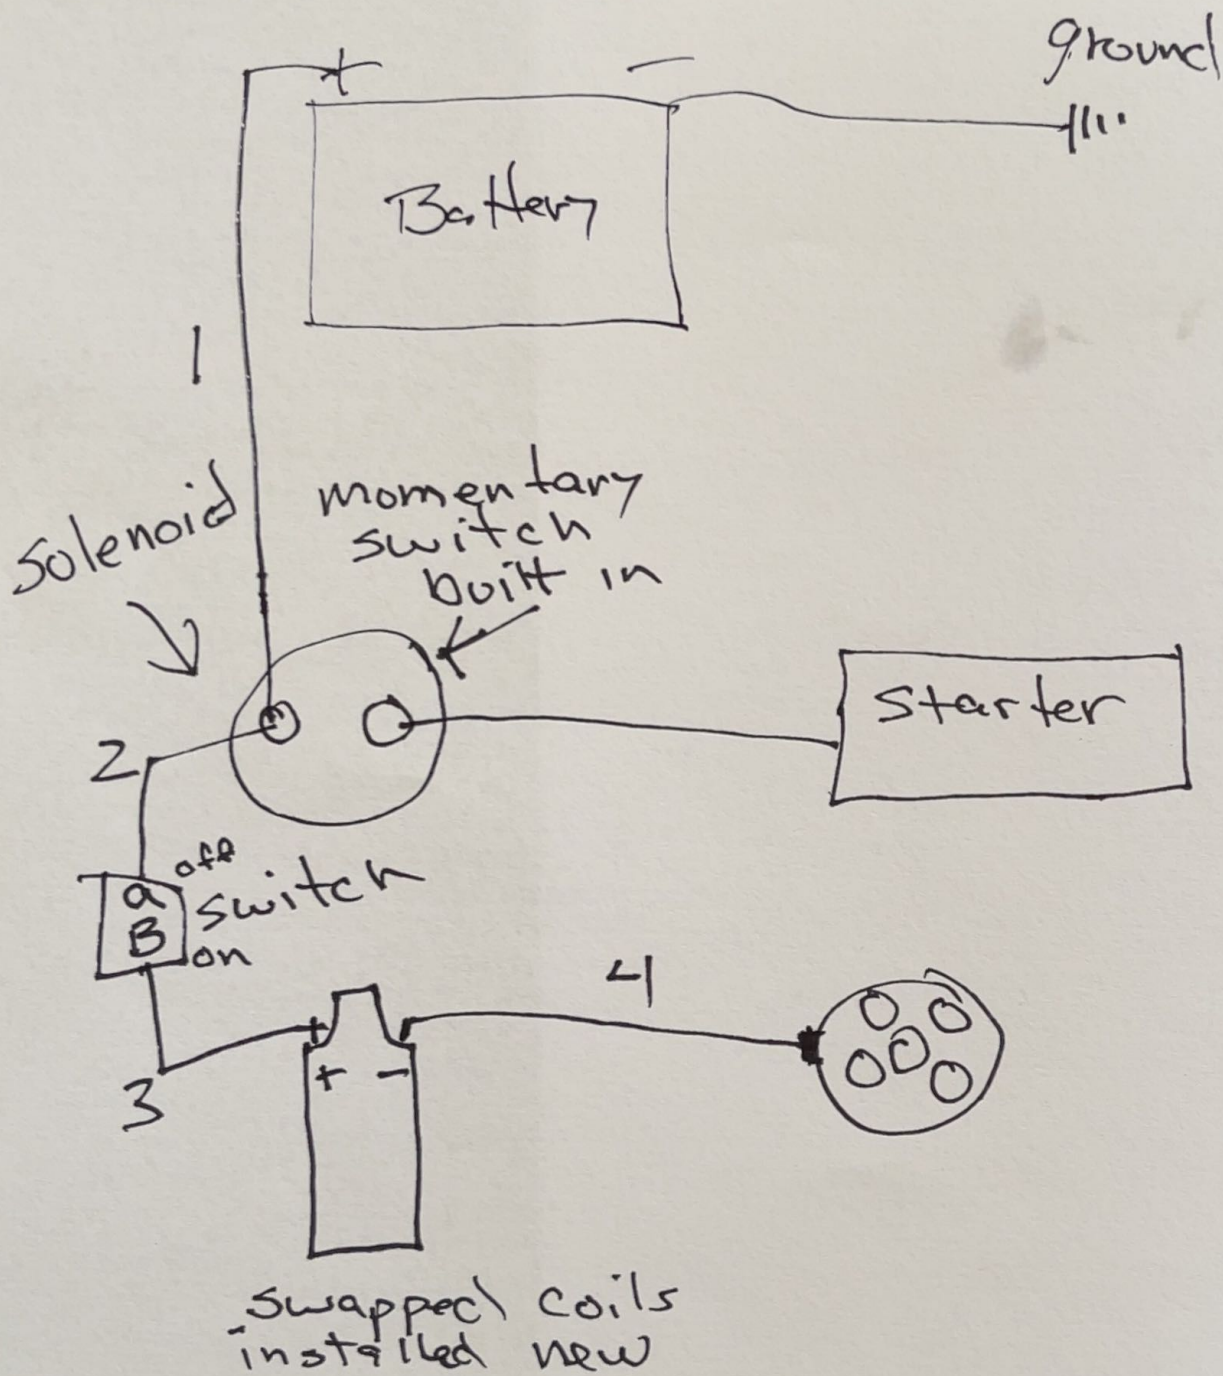 + -
ground
Battery
1
solenoid
momentary
switch
built in
starter
2
off
a
switch
B
on
4
3
+
+ -
swapped coils
installed new